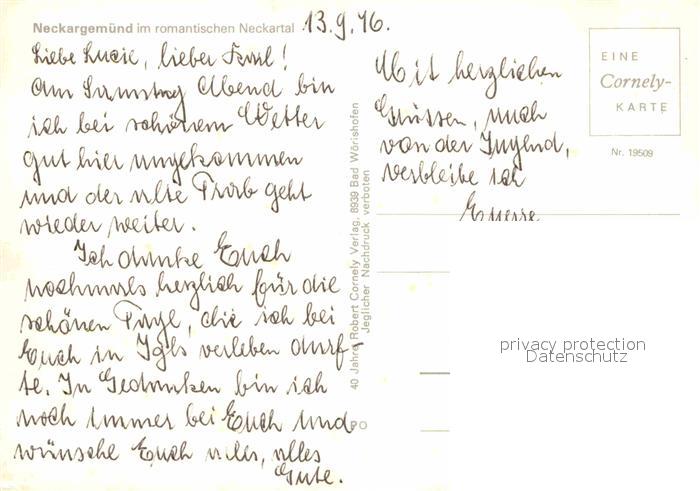 Neckargemünd im romantischen Neckartal 13.9.76.
Liebe Lucie, lieber Karl!
Am Samstag Abend bin
ich bei schönem Wetter
gut hier angekommen
und der alte Trab geht
wieder weiter.
Ich danke Euch
nochmals herzlich für die
schönen Tage, die ich bei
Euch in Igls verleben durf-
te. In Gedanken bin ich
noch immer bei Euch und
wünsche Euch alles, alles
Gute.
40 Jahre Robert Cornely Verlag, 8939 Bad Wörishofen
Jeglicher Nachdruck verboten
PO
Mit herzlichen
Grüssen, auch
von der Jugend,
verbleibe ich
Euere
EINE
Cornely-
KARTE
Nr. 19509
privacy protection
Datenschutz